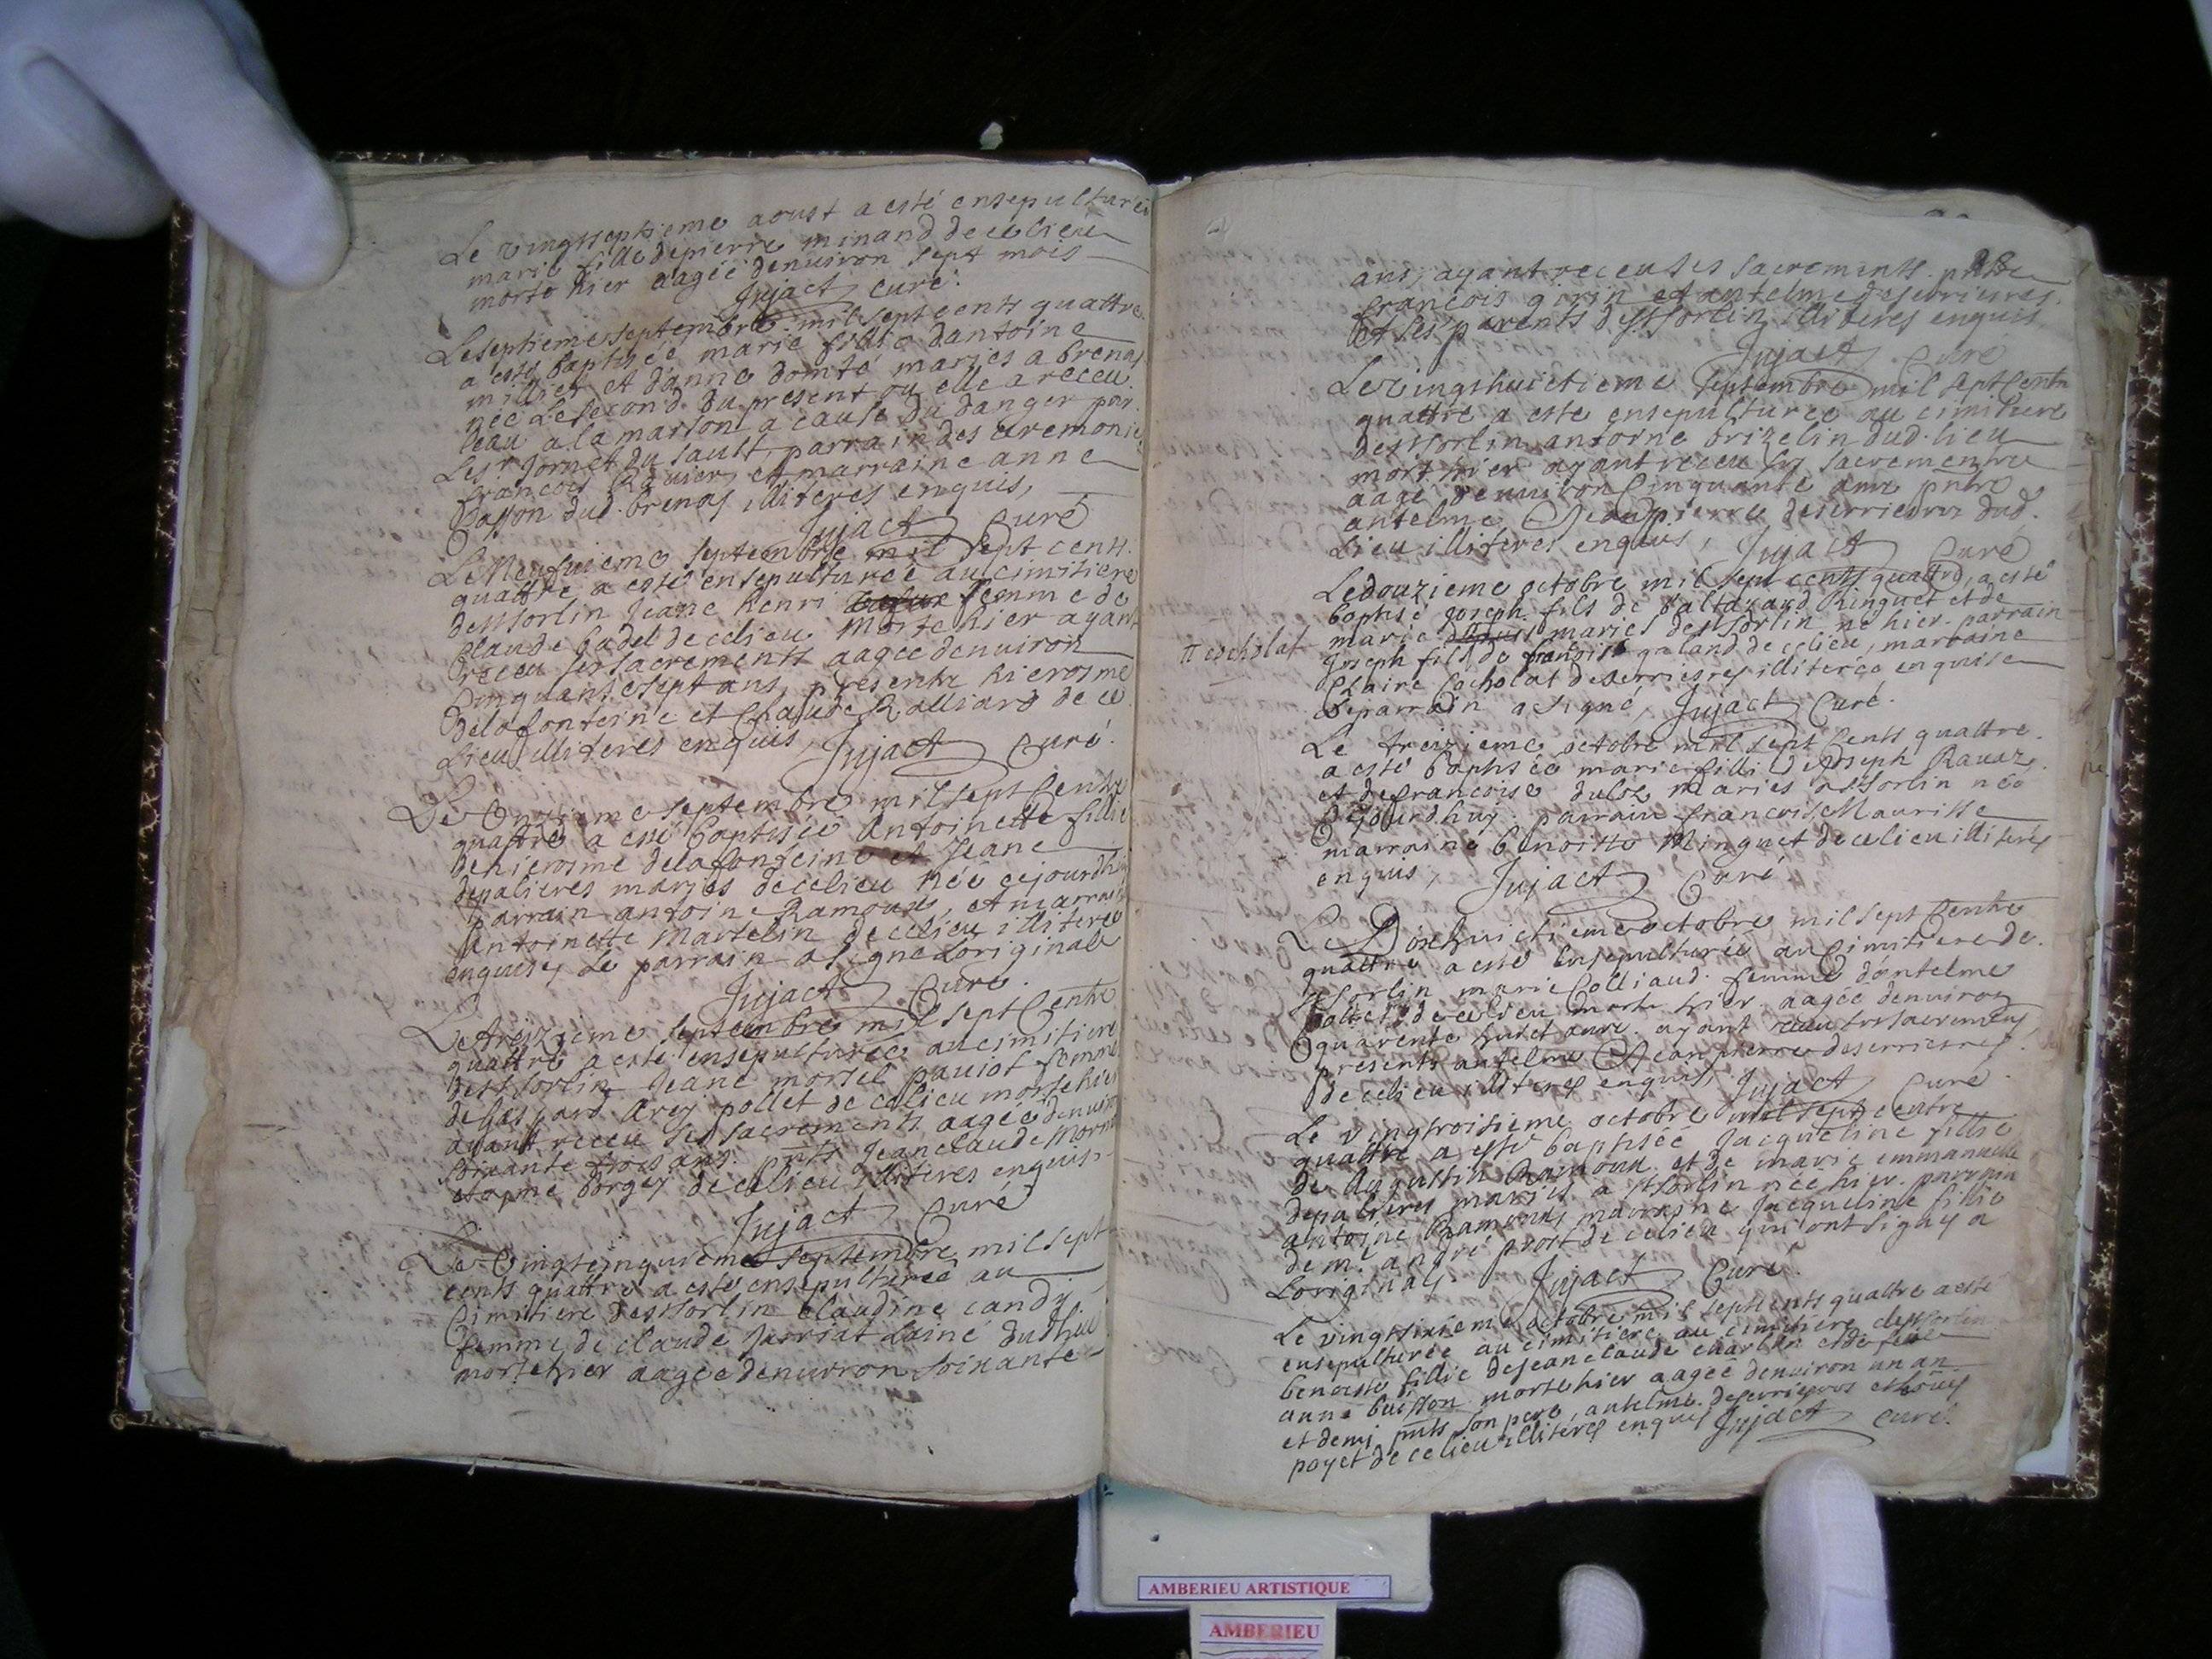 Le vingtseptieme aoust a esté ensepulturée
marie fille de pierre minand de ce lieu
morte hier aagée denuiron sept mois
Jujact curé.
Le septieme septembre mil sept cents quattre
a esté baptisée marie fillie dantoine
millier et danne domté mariés a brenas
née Le second du present ou elle a receu
leau a la maison a cause du danger par
Le sr Jornet du sault, parrain des ceremonies
francois et marraine anne
dud. brenas illiteres enquis,
Jujact Curé
Le Neufuieme septembre mil sept cents
quattre a esté ensepulturée au cimitiere
de st sorlin Jeane henri femme de
Claude badel de ce lieu morte hier ayant
receu ses sacrements aagée denuiron
Cinquante sept ans, presents hierosme
delafonteine et Claude Ralliard de ce
Lieu illiteres enquis, Jujact Curé.
Le Onzieme septembre mil sept Cents
quattre a esté baptisée Antoinette fillie
de hierosme delafonteine et Jeane
depalieres mariés de ce lieu née ce jourdhuy
parrain antoine Ramoux, et marraine
Antoinette Martelin de ce lieu illitere
enquise, Le parrain a signé Loriginale
Jujact Curé.
Le treizieme septembre mil sept Cents
quattre a esté ensepulturée au cimitiere
de st sorlin Jeane morsel pauiot femme
de Gaspard Arey pollet de ce lieu morte hier
ayant receu ses sacrements aagée denuiron
soixante trois ans. pnts Jean claude morn
et borgey de ce lieu illiteres enquis,
Jujact Curé
Le Vingtcinquieme septembre mil sept
cents quattre a esté ensepulturée au
Cimitiere de st sorlin Claudine candy
femme de claude Jarriat Lainé dud lieu
morte hier aagée denuiron soixante
28
ans, ayant receu ses sacrements. pnts
francois girin et antelme deserrieres
et ses parents de st sorlin illiteres enquis
Jujact Curé
Le vingthuictieme septembre mil sept Cents
quattre a esté ensepulturée au cimitiere
de st sorlin antoine brizelin dud. lieu
mort hier ayant receu ses sacrements
aagé denuiron Cinquante ans pnts
antelme et Jeanpierre deserrieres dud.
Lieu illiteres enquis, Jujact Curé
Le douzieme octobre mil sept cents quattre, a esté
baptisé joseph fils de baltazard Ringuet et de
π cocholat
marie π mariés de st sorlin né hier. parrain
Joseph fils de francois galand de ce lieu, marraine
Claire Cocholat deserrieres illiterée enquise
Le parrain a signé, Jujact Curé.
Le treizieme octobre mil sept Cents quattre
a esté baptisée marie fillie de Joseph Rauaz
et de francoise duloz mariés a st sorlin née
Cejourdhuy. parrain francois Maurisse
marraine benoitte Minguet de ce lieu illiteres
enquis, Jujact Curé
Le Dixhuictieme octobre mil sept Cents
quattre a esté Ensepulturée au Cimitiere de
st sorlin marie Colliaud femme dantelme
de ce lieu morte hier aagée denuiron
quarente huict ans. ayant receu ses sacremens
presents antelme et Jean pierre deserrieres
de ce lieu illiteres enquis, Jujact Curé
Le vingtroisieme octobre mil sept cents
quattre a esté baptisée Jacqueline fillie
de Augustin Ramoux et de marie emmanuelle
depalieres mariés a st sorlin née hier. parrain
antoine Ramoux marraine Jacqueline fillie
de me. andré prost de ce lieu qui ont signé a
Loriginal Jujact Curé.
Le vingtsixieme octobre mil septcents quattre a esté
ensepulturée au cimitiere au cimitiere de st sorlin
benoitte fillie de Jean claude charlin et de feue
anne buisson morte hier aagée denuiron un an
et demi pnts son pere, antelme deserrieres et louis
payet de ce lieu illiteres enquis Jujact curé.
AMBERIEU ARTISTIQUE
AMBERIEU